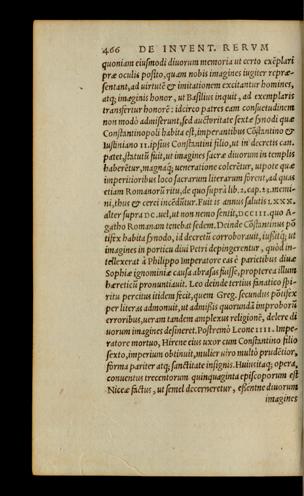 466 DE INVENT. RERVM
quoniam eiusmodi diuorum memoria ut certo exẽplari
præ oculis posito, quam nobis imagines iugiter repræ-
sentant, ad uirtutẽ & imitationem excitantur homines,
atq; imaginis honor, ut Basilius inquit, ad exemplaris
transfertur honorẽ: idcirco patres eam consuetudinem
non modò admiserunt, sed auctoritate sextæ synodi quæ
Constantinopoli habita est, imperantibus Cõstãtino &
Iustiniano II. ipsius Constantini filio, ut in decretis can.
patet, statutũ fuit, ut imagines sacræ diuorum in templis
haberẽtur, magnaq; ueneratione colerẽtur, utpote quæ
imperitioribus loco sacrarum literarum forent, ad quas
etiam Romanorũ ritu, de quo suprà lib. 2. cap. 23. memi-
ni, thus & cerei incẽditur. Fuit is annus salutis LXXX.
alter supra DC. uel, ut non nemo sentit, DCCIII. quo A-
gatho Romanam tenebat sedem. Deinde Cõstãtinus põ
tifex habita synodo, id decretũ corroborauit, iussitq; ut
imagines in porticu diui Petri depingerentur, quòd in-
tellexerat à Philippo Imperatore eas è parietibus diuæ
Sophiæ ignominiæ causa abrasas fuisse, propterea illum
hæreticũ pronuntiauit. Leo deinde tertius fanatico spi-
ritu percitus itidem fecit, quem Greg. secundus põtifex
per literas admonuit, ut admissis quorundã improborũ
erroribus, ueram tandem amplexus religionẽ, delere di
uorum imagines desineret. Postremò Leone IIII. Impe-
ratore mortuo, Hirene eius uxor cum Constantino filio
sexto, imperium obtinuit, mulier uiro multò prudẽtior,
forma pariter atq; sanctitate insignis. Huius itaq; opera,
conuentus trecentorum quinquaginta episcoporum est
Niceæ factus, ut semel decerneretur, eßentne diuorum
imagines